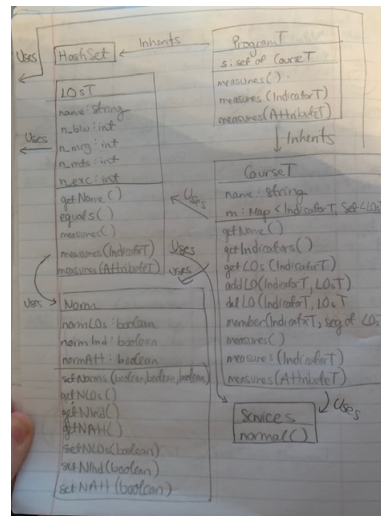 Uses
HashSet
Inherits
ProgramT
s: set of CourseT
measures()
measures(IndicatorT)
measures(AttributeT)
Inherits
LOsT
name: string
n_blw: int
n_mrg: int
n_mts: int
n_exc: int
getName()
equals()
measures()
measures(IndicatorT)
measures(AttributeT)
Uses
Uses
Uses
Uses
Uses
CourseT
name: string
m: Map <IndicatorT, Set<LOs
getName()
getIndicators()
getLOs(IndicatorT)
addLO(IndicatorT, LOsT
delLO(IndicatorT, LOsT
member(IndicatorT, seq of LOs
measures()
measures(IndicatorT)
measures(AttributeT)
Uses
Services
normal()
Norm
normLOs: boolean
normInd: boolean
normAtt: boolean
setNorms(boolean,boolean,boolean)
getNLOs()
getNInd()
getNAtt()
setNLOs(boolean)
setNInd(boolean)
setNAtt(boolean)